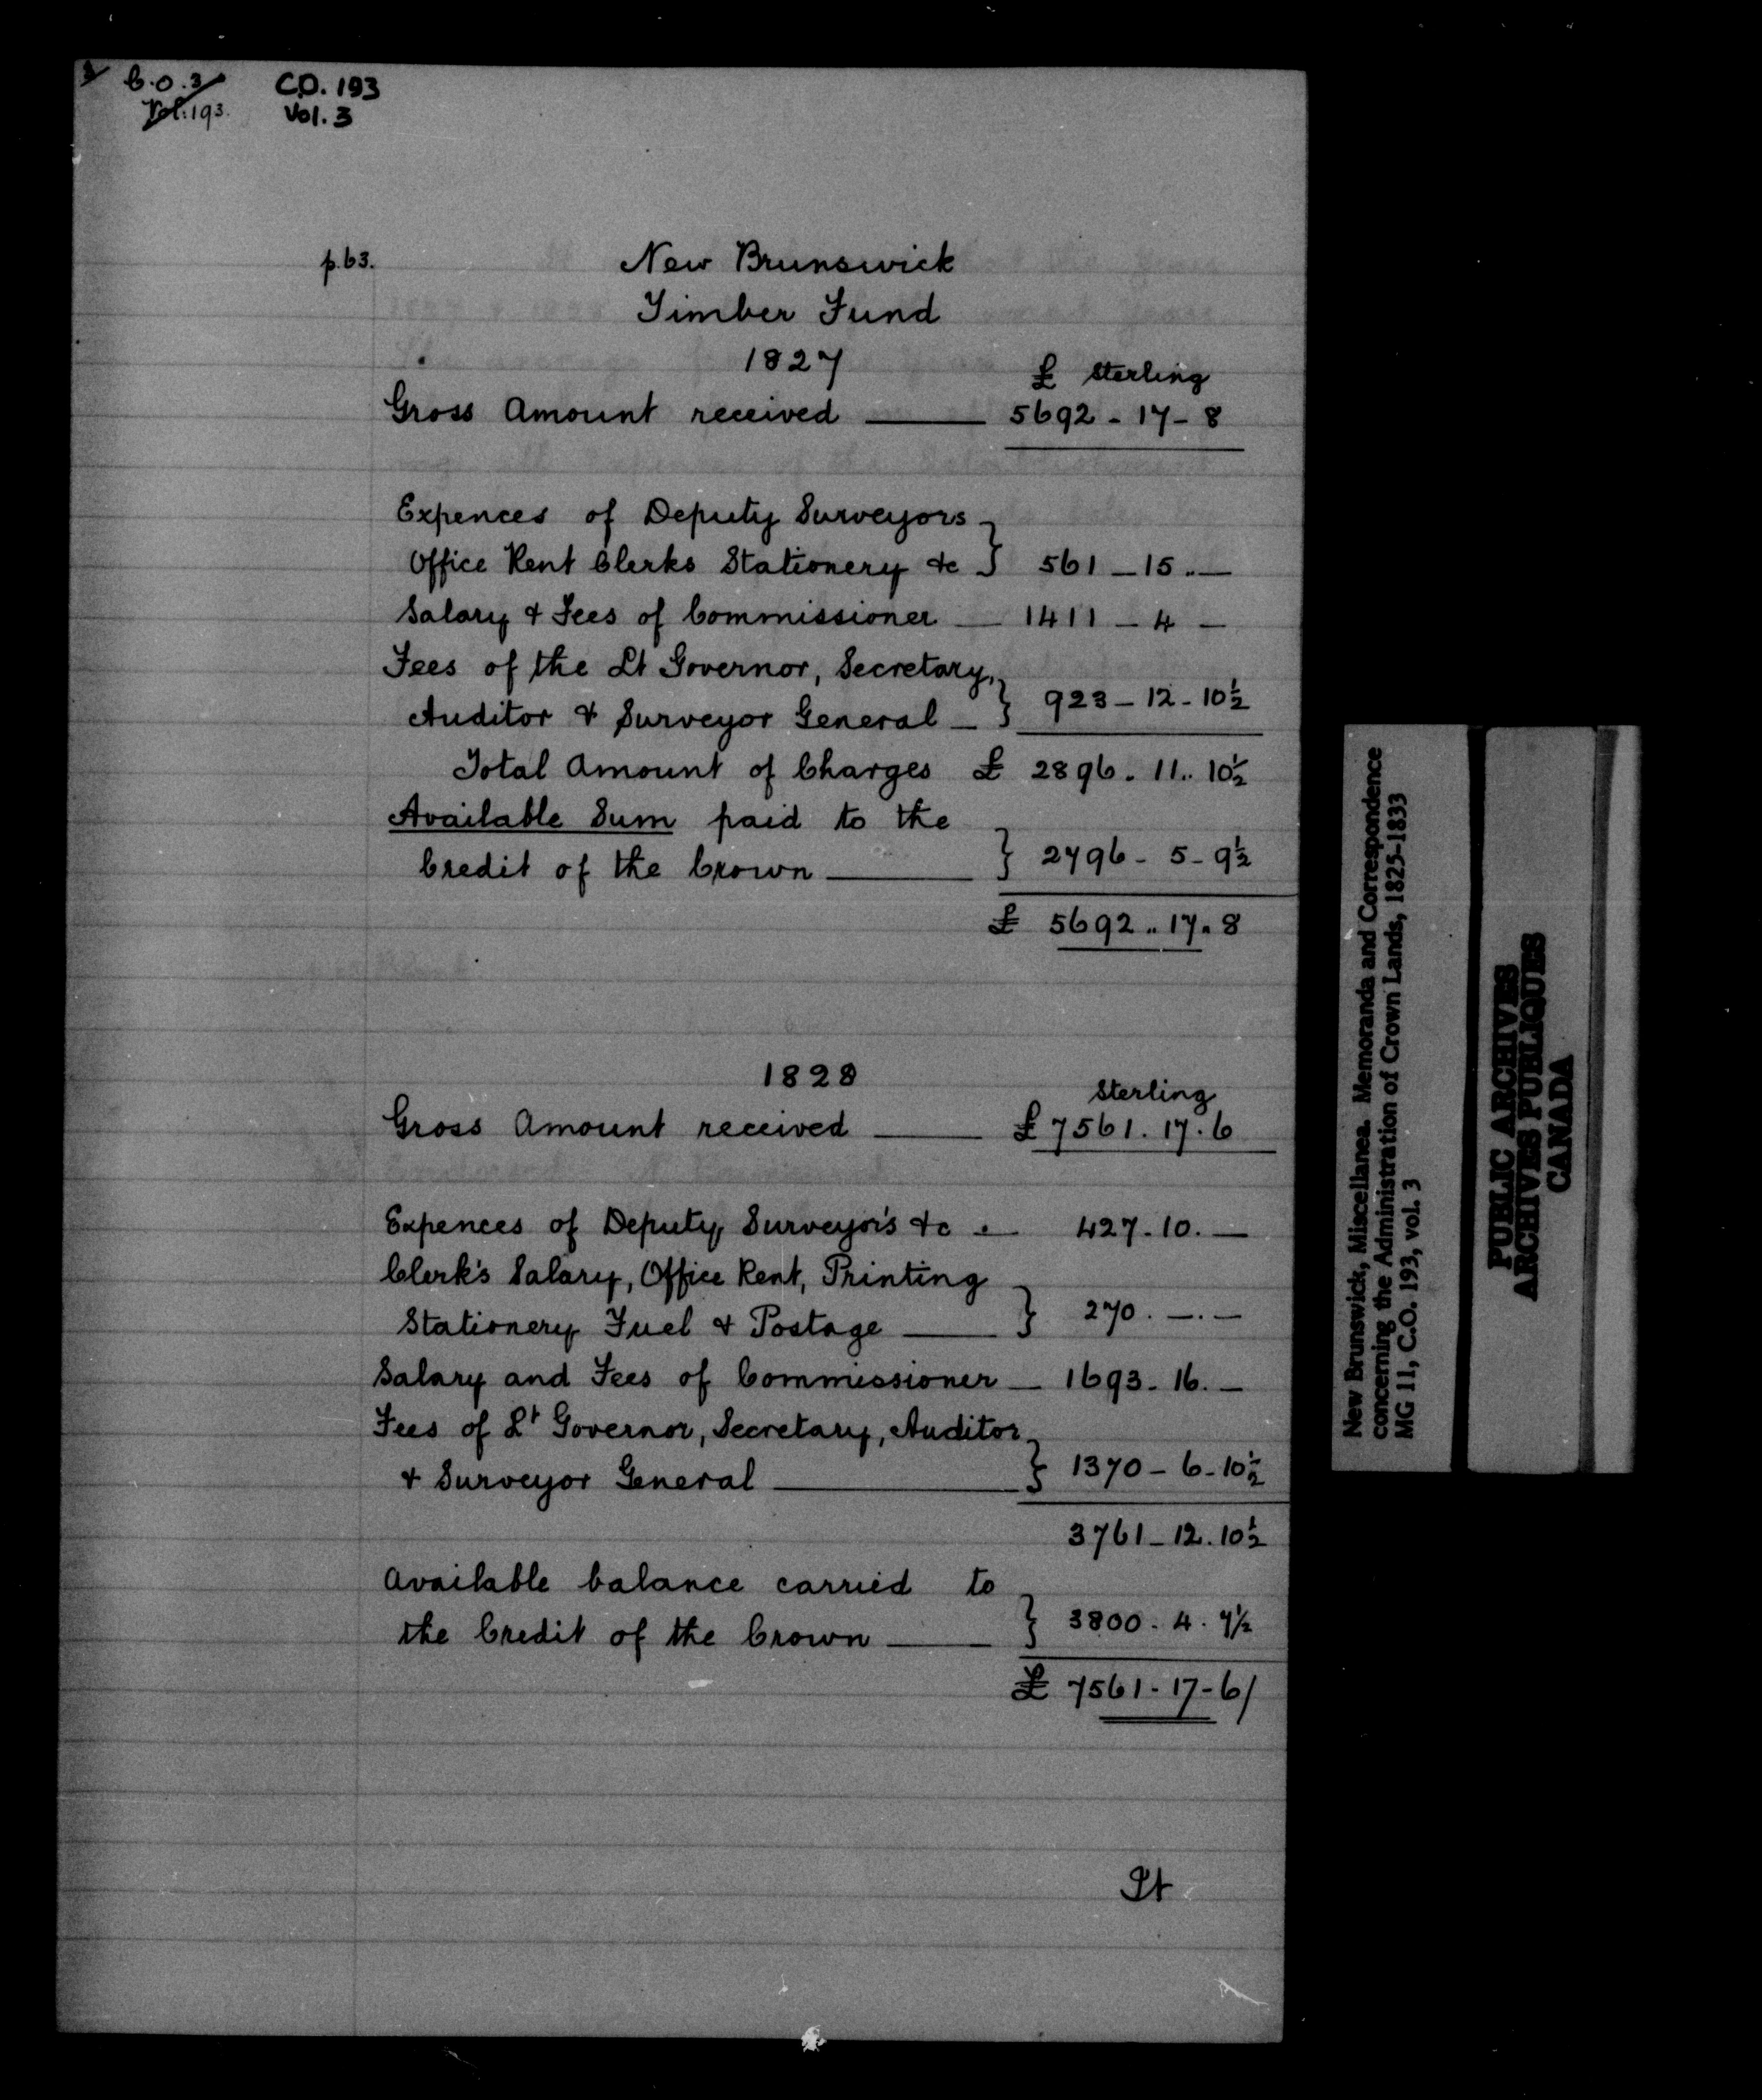 C.O. 3
Vol. 193.
C.O. 193
Vol. 3
p. 63.
New Brunswick
Timber Fund
1827
£ Sterling
Gross Amount received —— 5692 - 17 - 8
Expences of Deputy Surveyors
Office Rent Clerks Stationery &c } 561 - 15 .. —
Salary & Fees of Commissioner — 1411 - 4 -
Fees of the Lt Governor, Secretary,
Auditor & Surveyor General — } 923 - 12 - 10½
Total Amount of Charges £ 2896 . 11 .. 10½
Available Sum paid to the
Credit of the Crown —— } 2796 - 5 - 9½
£ 5692 .. 17 . 8
1828
Sterling
Gross Amount received —— £ 7561 . 17 . 6
Expences of Deputy Surveyor's &c . — 427 - 10 . —
Clerk's Salary, Office Rent, Printing
Stationery Fuel & Postage —— } 270 . — . —
Salary and Fees of Commissioner — 1693 - 16 . —
Fees of Lt Governor, Secretary, Auditor
& Surveyor General —— } 1370 - 6 - 10½
3761 - 12 . 10½
Available balance carried to
the Credit of the Crown —— } 3800 . 4 . 7½
£ 7561 - 17 - 6/
It
New Brunswick, Miscellanea. Memoranda and Correspondence
concerning the Administration of Crown Lands, 1825-1833
MG 11, C.O. 193, vol. 3
PUBLIC ARCHIVES
ARCHIVES PUBLIQUES
CANADA